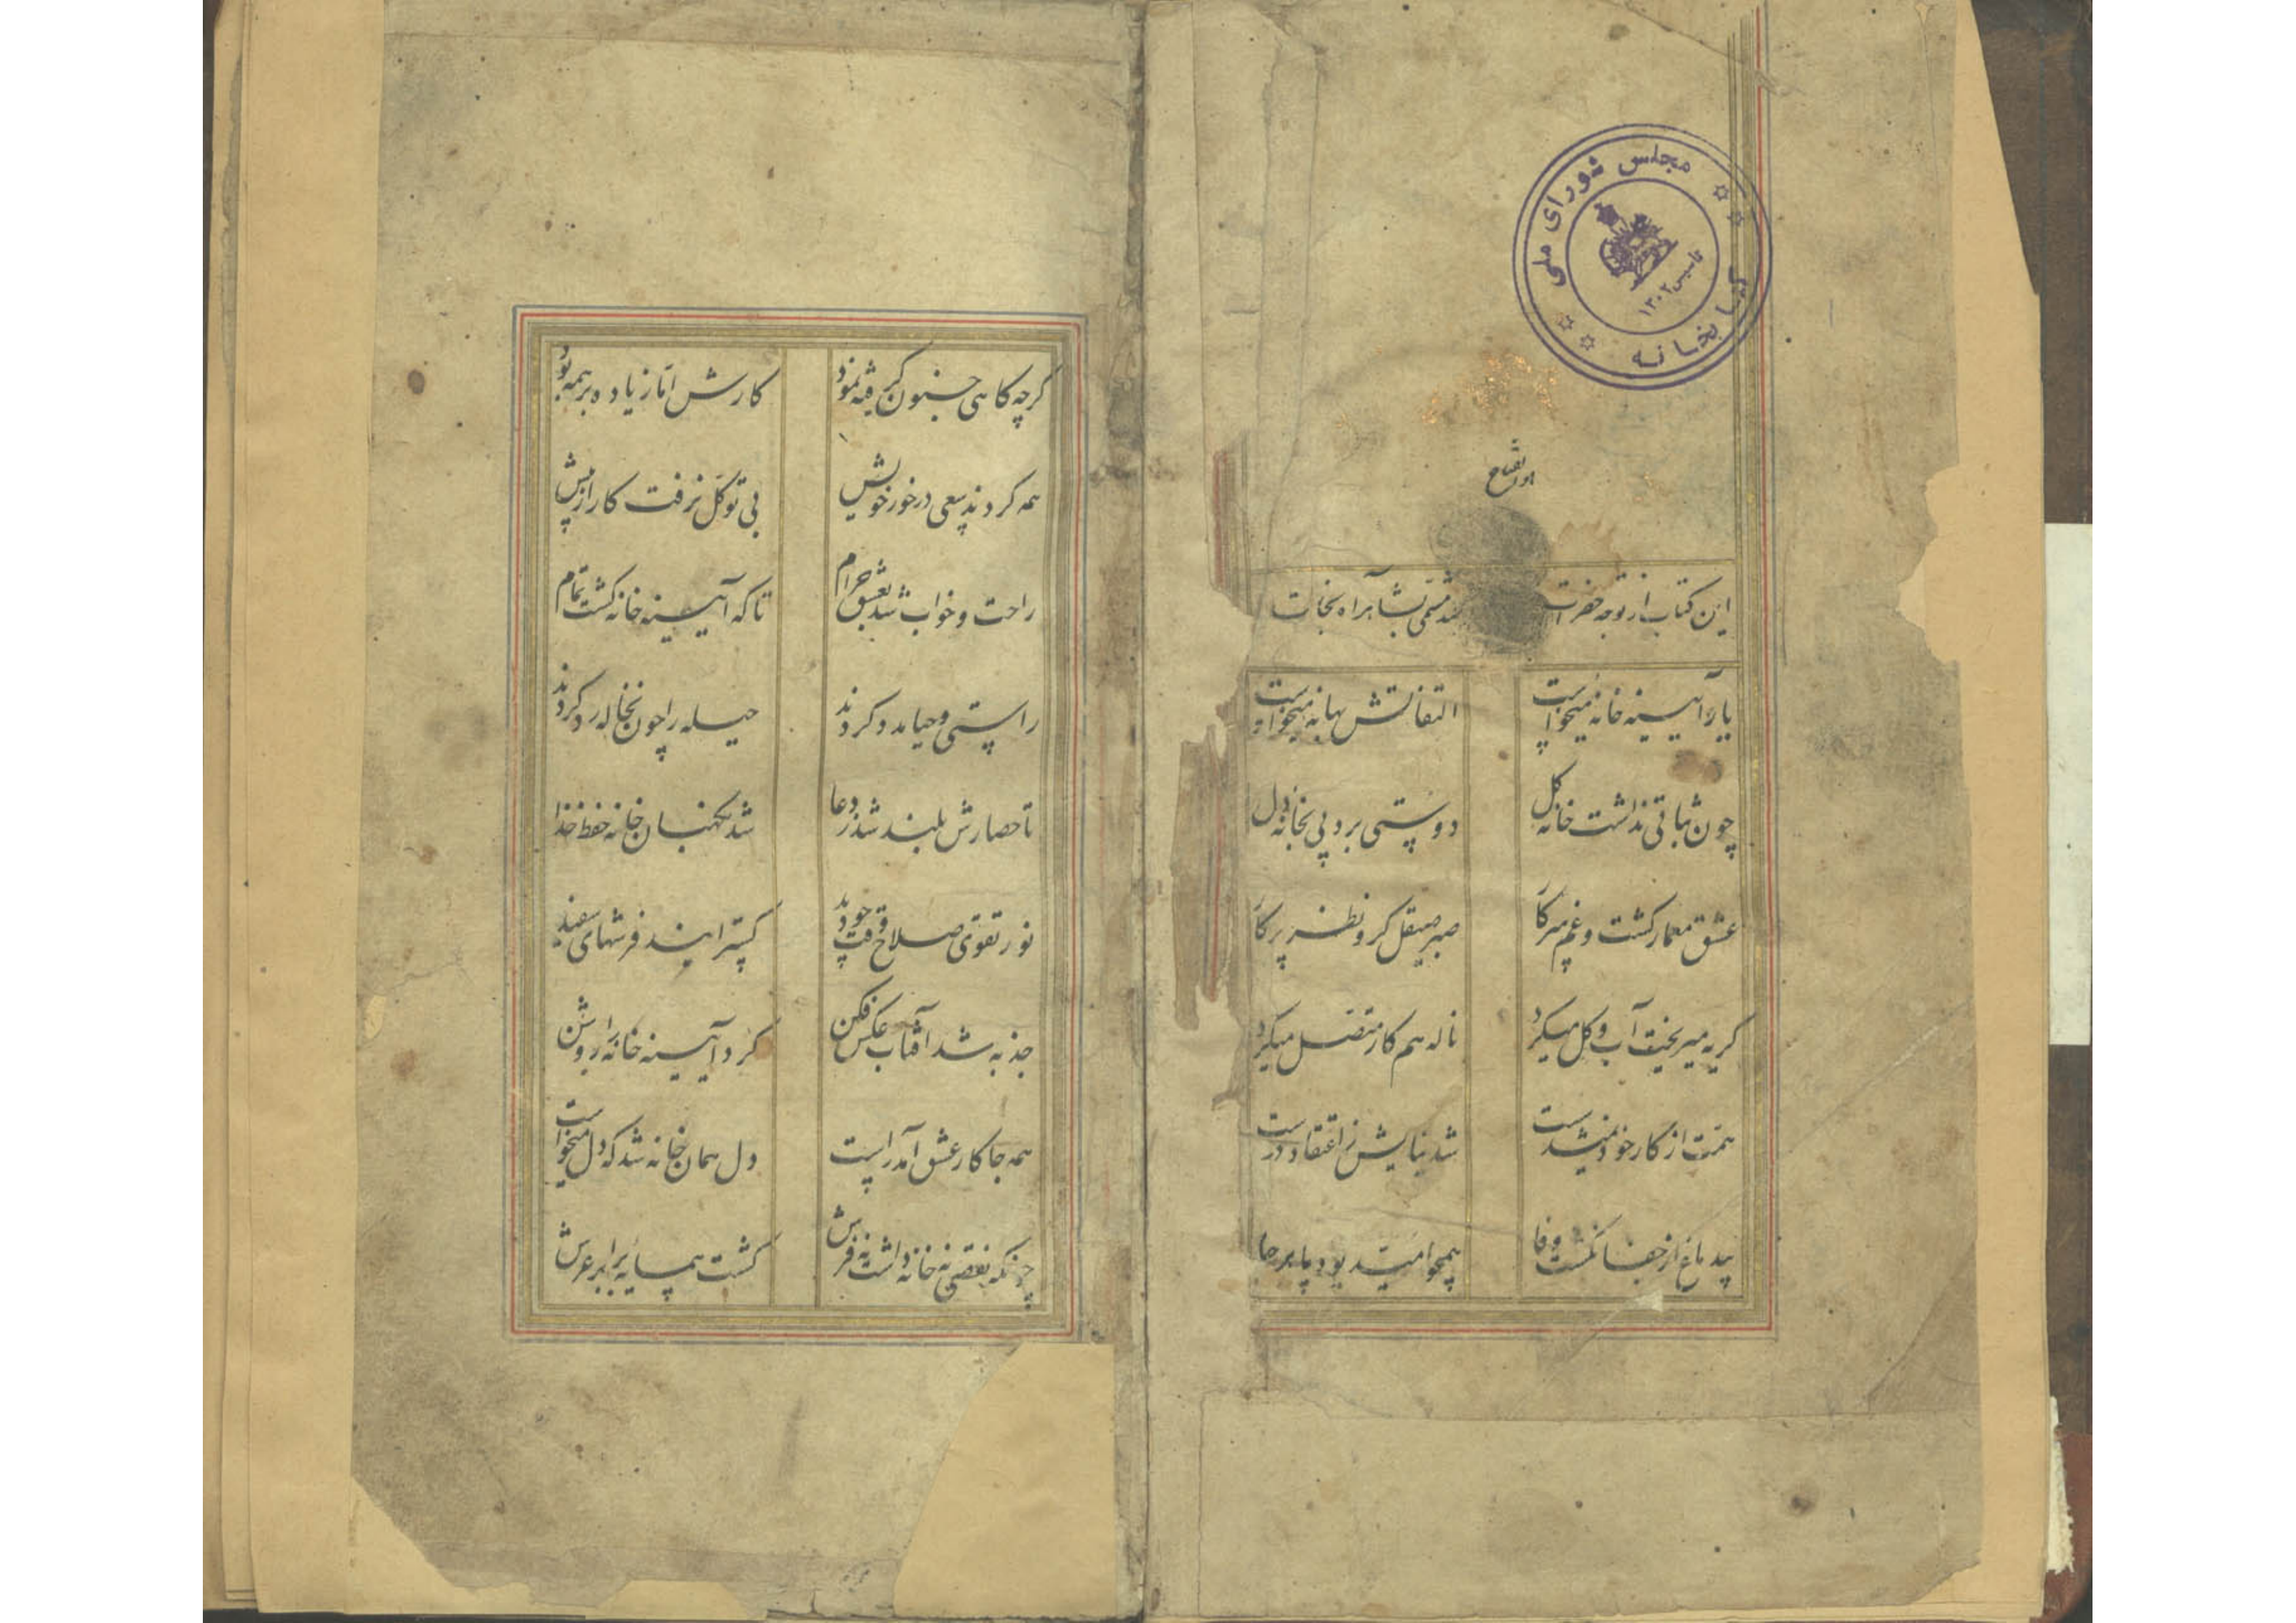 مجلس شورای ملی
کتابخانه
تاسیس ۱۳۰۲
این کتاب از توجه حضرت شد مسمی بشاهراه نجات
یار آیینه خانه میخواست التفاتش بهانه میخواست
چون ثباتی نداشت خانه گل دوستی برد پی بخانه دل
عشق معمار گشت و غم سرکار صبر صیقل گر و نظر پرکار
گریه میریخت آب و گل میکرد ناله هم کار متصل میکرد
همت از کار خود نمیشد سست شد بنایش ز اعتقاد درست
بیدماغ از جفا نگشت وفا همچو امید بود پا برجا
گرچه کاهی جنون گریه نمود کارش اما زیاده بر همه بود
همه کردند سعی در خور خویش بی توکل نرفت کار از پیش
راحت و خواب شد بعشق حرام تا که آیینه خانه گشت تمام
راستی و حیا مدد کردند حیله را چون نخاله رد کردند
تا حصارش بلند شد ز دعا شد نگهبان خانه حفظ خدا
نور تقوی صلاح وقت چو دید گسترانید فرشهای سفید
جذبه شد آفتاب عکس فکن کرد آیینه خانه را روشن
همه جا کار عشق آمد راست دل همان خانه شد که دل میخواست
چونکه نقصی نه خانه داشت نه فرش گشت همسایه برابر عرش